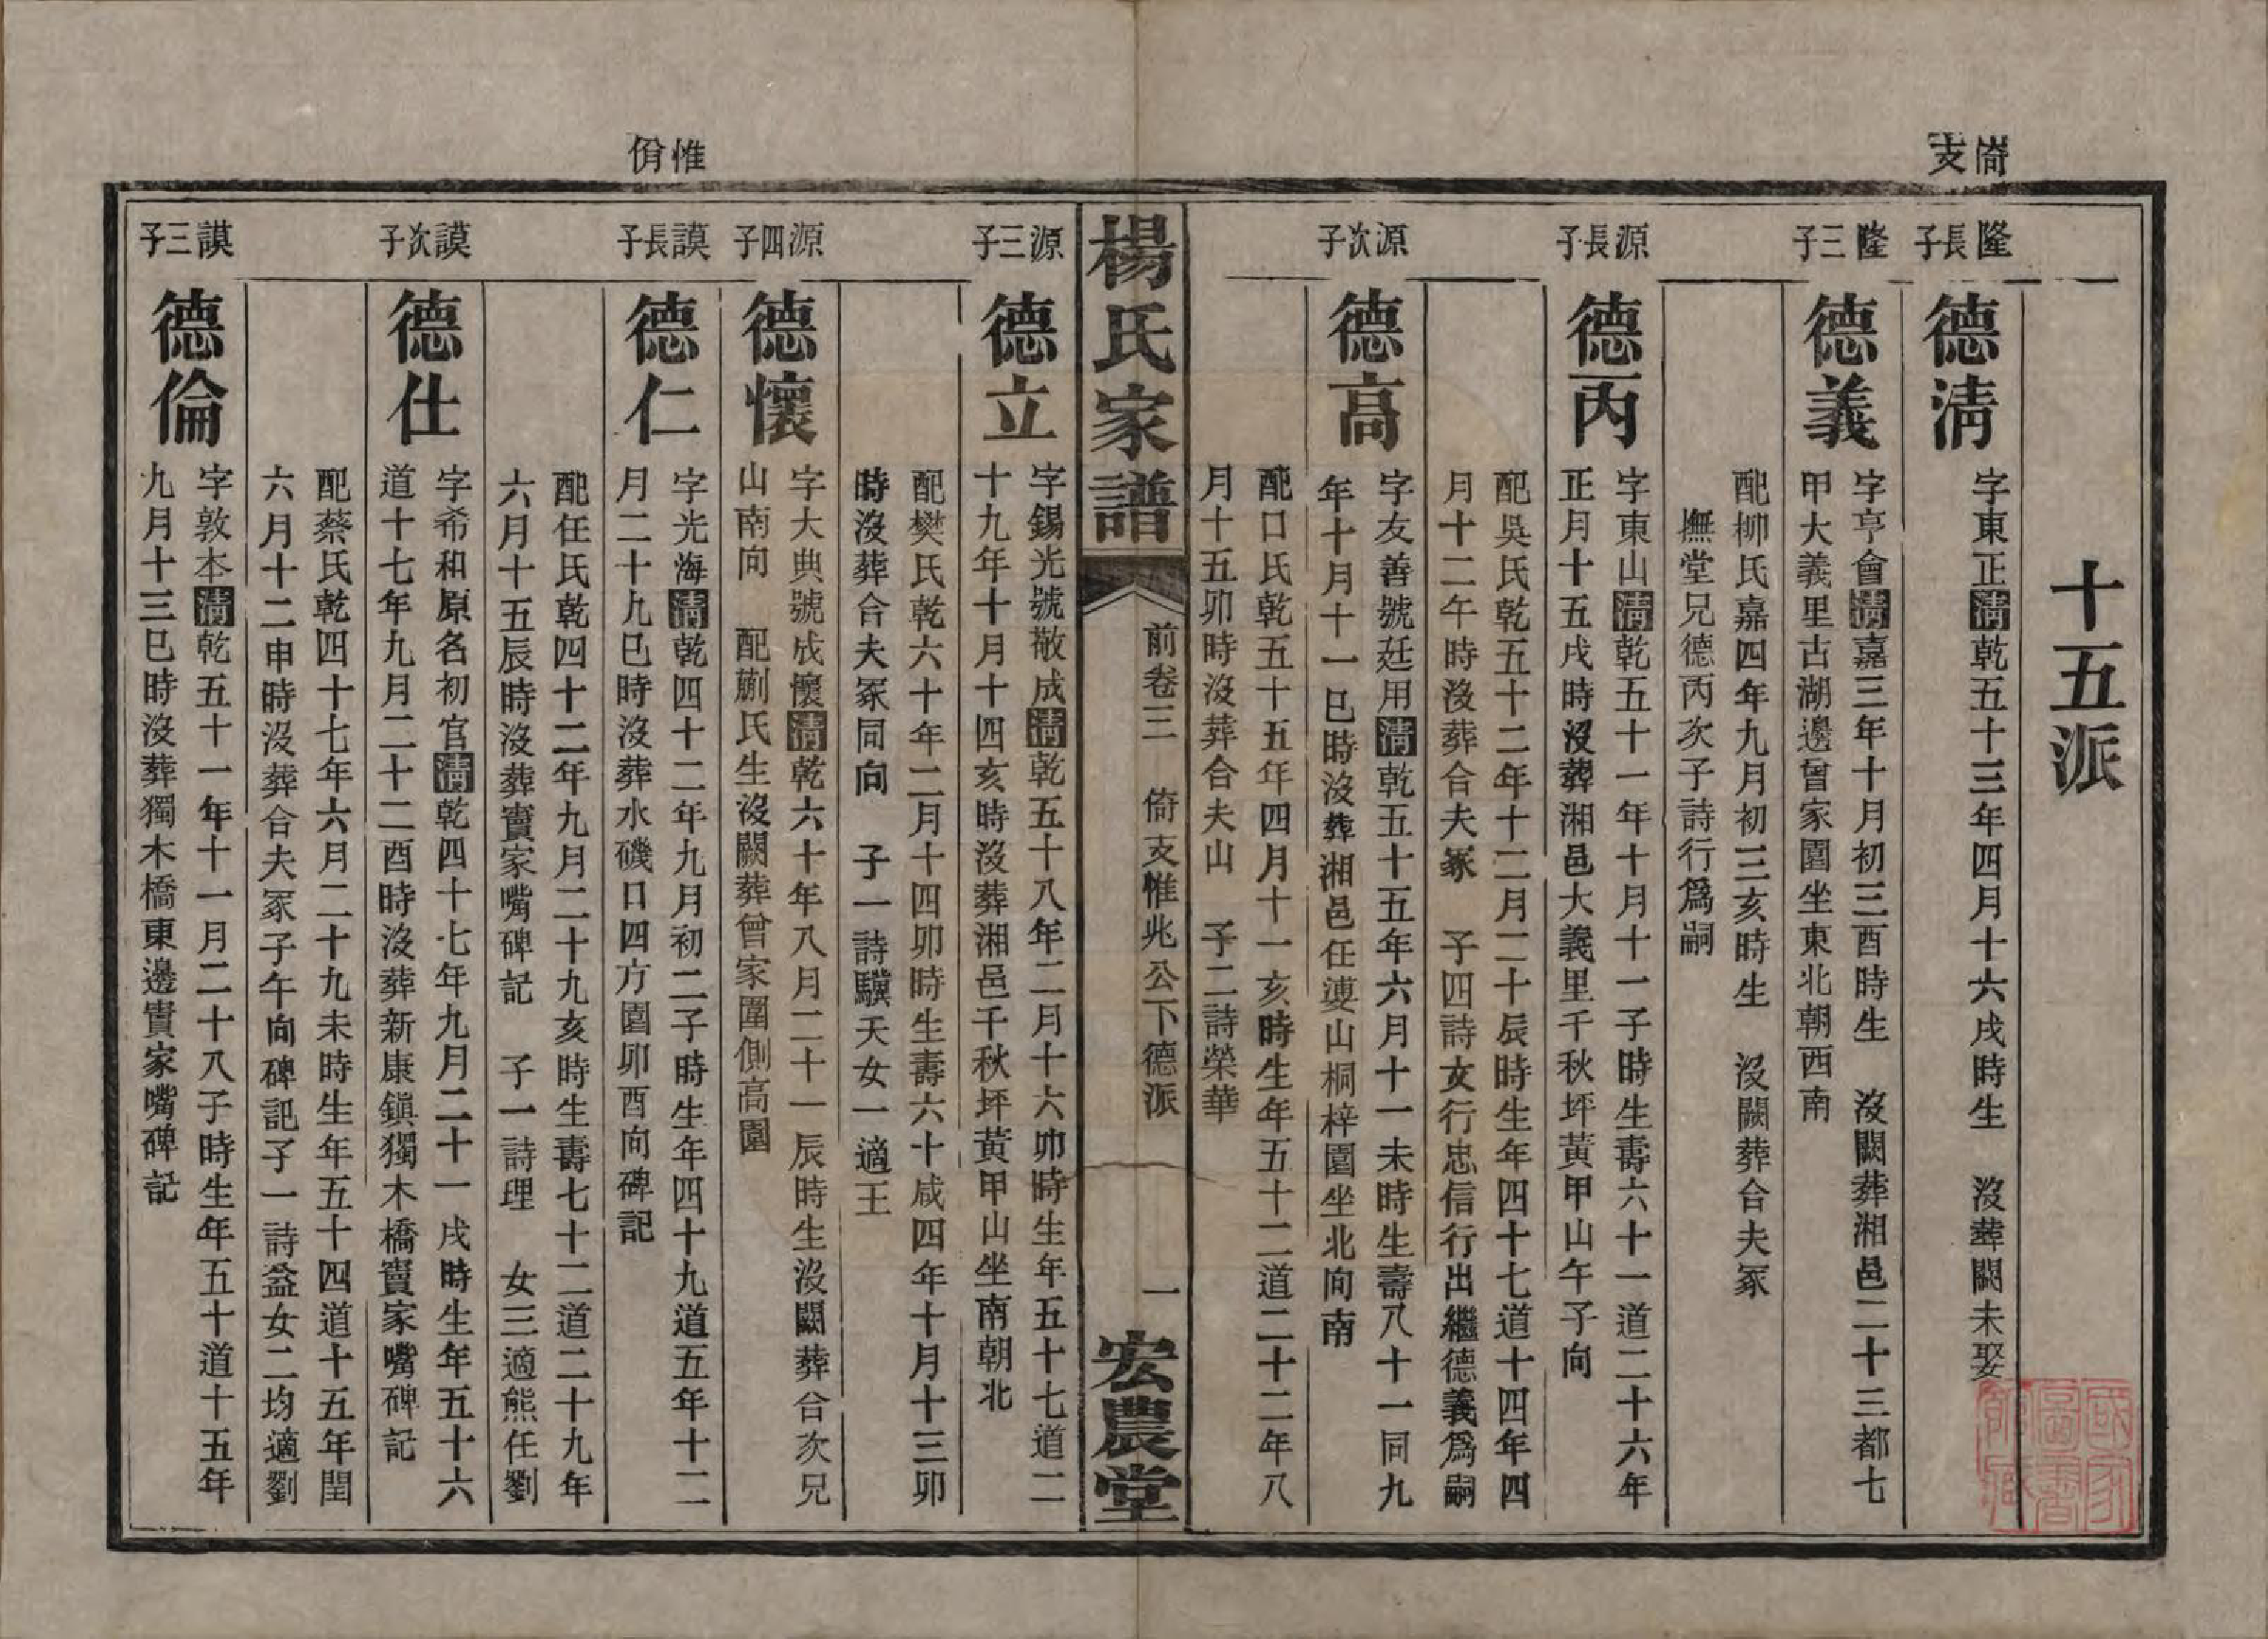 十五派
隆長子
德淸
字東正淸乾五十三年四月十六戌時生 沒葬闕未娶
隆三子
德義
字亨會淸嘉三年十月初三酉時生 沒闕葬湘邑二十三都七
甲大義里古湖邊曾家園坐東北朝西南
配柳氏嘉四年九月初三亥時生 沒闕葬合夫冢
撫堂兄德丙次子詩行爲嗣
源長子
德丙
字東山淸乾五十一年十月十一子時生壽六十一道二十六年
正月十五戌時沒葬湘邑大義里千秋坪黃甲山午子向
配吳氏乾五十二年十二月二十辰時生年四十七道十四年四
月十二午時沒葬合夫冢 子四詩文行忠信行出繼德義爲嗣
源次子
德高
字友善號廷用淸乾五十五年六月十一未時生壽八十一同九
年十月十一巳時沒葬湘邑任山桐梓園坐北向南
配口氏乾五十五年四月十一亥時生年五十二道二十二年八
月十五卯時沒葬合夫山 子二詩榮華
楊氏家譜
前卷三 倚支惟兆公下德派
一
宏農堂
源三子
德立
字錫光號敬成淸乾五十八年二月十六卯時生年五十七道二
十九年十月十四亥時沒葬湘邑千秋坪黃甲山坐南朝北
配樊氏乾六十年二月十四卯時生壽六十咸四年十月十三卯
時沒葬合夫冢同向 子一詩驥夭女一適王
源四子
德懷
字大典號成懷淸乾六十年八月二十一辰時生沒闕葬合次兄
山南向 配蒯氏生沒闕葬曾家圍側高園
惟佾
謨長子
德仁
字光海淸乾四十二年九月初二子時生年四十九道五年十二
月二十九巳時沒葬水磯口四方園卯酉向碑記
配任氏乾四十二年九月二十九亥時生壽七十二道二十九年
六月十五辰時沒葬竇家嘴碑記 子一詩理 女三適熊任劉
謨次子
德仕
字希和原名初官淸乾四十七年九月二十一戌時生年五十六
道十七年九月二十二酉時沒葬新康鎮獨木橋竇家嘴碑記
配蔡氏乾四十七年六月二十九未時生年五十四道十五年閏
六月十二申時沒葬合夫冢子午向碑記子一詩益女二均適劉
謨三子
德倫
字敦本淸乾五十一年十一月二十八子時生年五十道十五年
九月十三巳時沒葬獨木橋東邊竇家嘴碑記